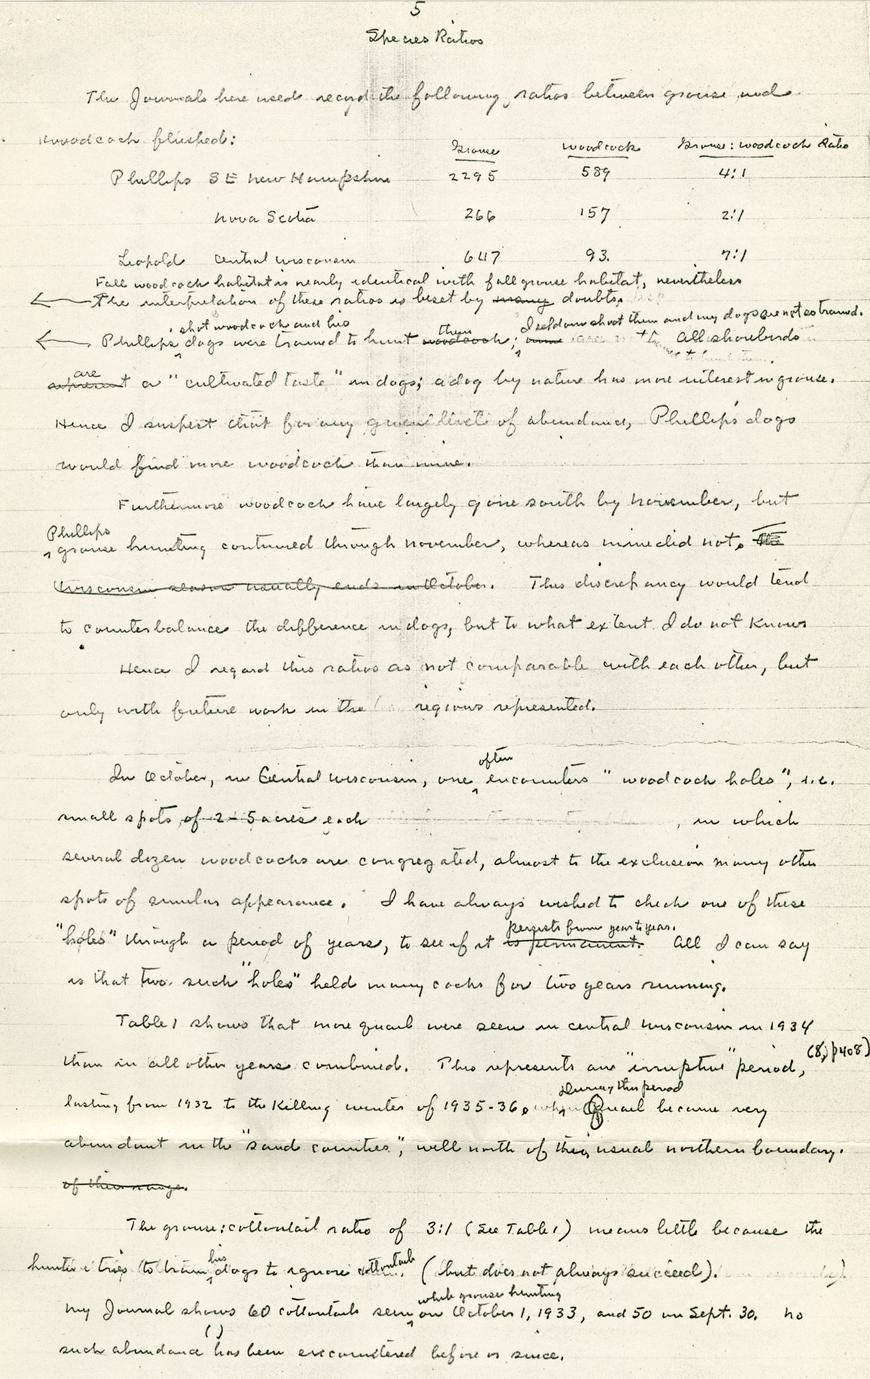 5
Species Ratios
The Journals here used record the following ratios between grouse and
woodcock flushed:
Grouse woodcock Grouse:woodcock Ratio
Phillips SE New Hampshire 2295 589 4:1
Nova Scotia 266 157 2:1
Leopold Central Wisconsin 647 93. 7:1
Fall woodcock habitat is nearly identical with fall grouse habitat, nevertheless
The interpretation of these ratios is beset by many doubts.
shot woodcock and his I seldom shoot them and my dogs are not so trained.
Phillips dogs were trained to hunt woodcock them; All shorebirds
are
represent a "cultivated taste" in dogs; a dog by nature has more interest in grouse.
Hence I suspect that for any given level of abundance, Phillips' dogs
would find more woodcock than mine.
Furthermore woodcock have largely gone south by November, but
Phillips
grouse hunting continued through November, whereas mine did not. The
Wisconsin season usually ends in October. This discrepancy would tend
to counterbalance the difference in dogs, but to what extent I do not know
Hence I regard this ratios as not comparable with each other, but
only with future work in the regions represented.
In October, in Central Wisconsin, one often encounters "woodcock holes", i.e.
small spots of 2-5 acres each , in which
several dozen woodcocks are congregated, almost to the exclusion many other
spots of similar appearance. I have always wished to check one of these
persists from year to year.
"holes" through a period of years, to see if it is permanent. All I can say
is that two such "holes" held many cocks for two years running.
Table 1 shows that more quail were seen in central Wisconsin in 1934
than in all other years combined. This represents an "irruptive" period, (8, p408)
During this period
lasting from 1932 to the killing winter of 1935-36. Quail became very
abundant in the "sand counties", well north of their usual northern boundary.
of their range.
The grouse:cottontail ratio of 3:1 (See Table 1) means little because the
hunter tries to train his dogs to ignore cottontails. (but does not always succeed).
while grouse hunting
My Journal shows 60 cottontails seen on October 1, 1933, and 50 on Sept. 30. No
( )
such abundance has been encountered before or since.